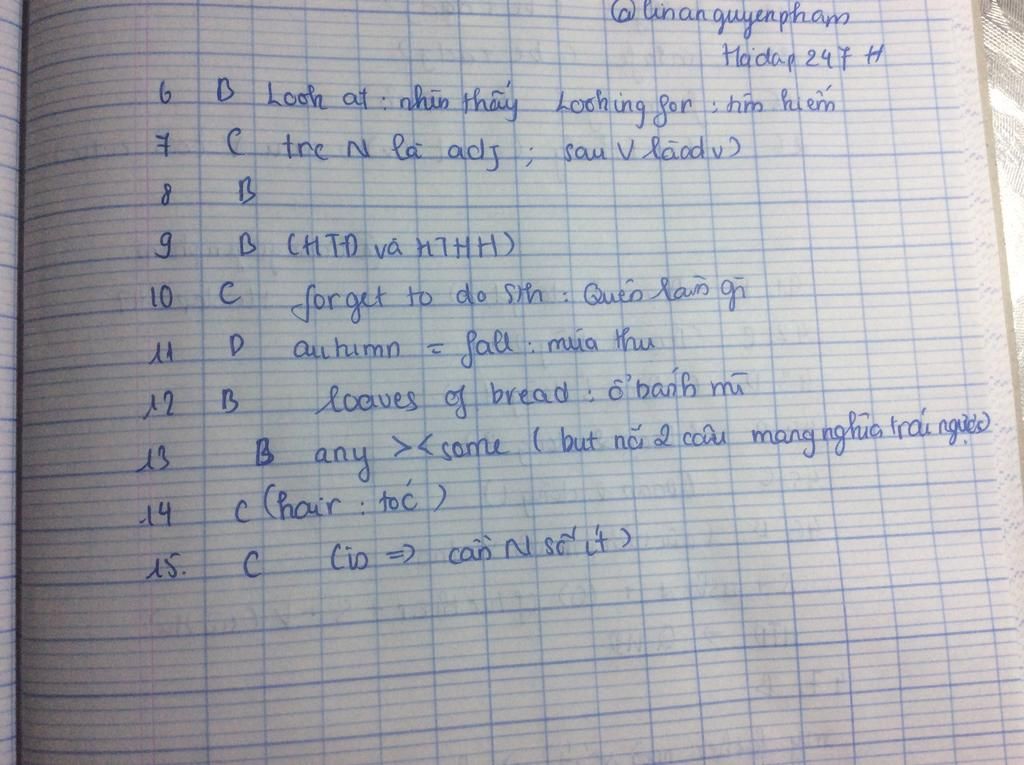 @linanguyenpham
Hoidap 247 H
6 B Look at : nhìn thấy Looking for : tìm kiếm
7 C trc N là adj ; sau V là adv)
8 B
9 B (HTD và HTHH)
10 C forget to do sth : Quên làm gì
11 D autumn = fall : mùa thu
12 B loaves of bread : ổ bánh mì
13 B any >< some ( but nối 2 câu mang nghĩa trái ngược)
14 C (hair : tóc)
15. C (is => cần N số ít)